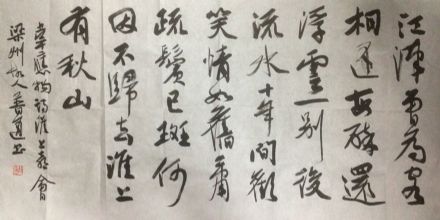 江漢曾為客
相逢每醉還
浮雲一別後
流水十年間歡
笑情如舊蕭
疏鬢已斑何
因不歸去淮上
有秋山
韋應物詩淮上喜會
梁州故人